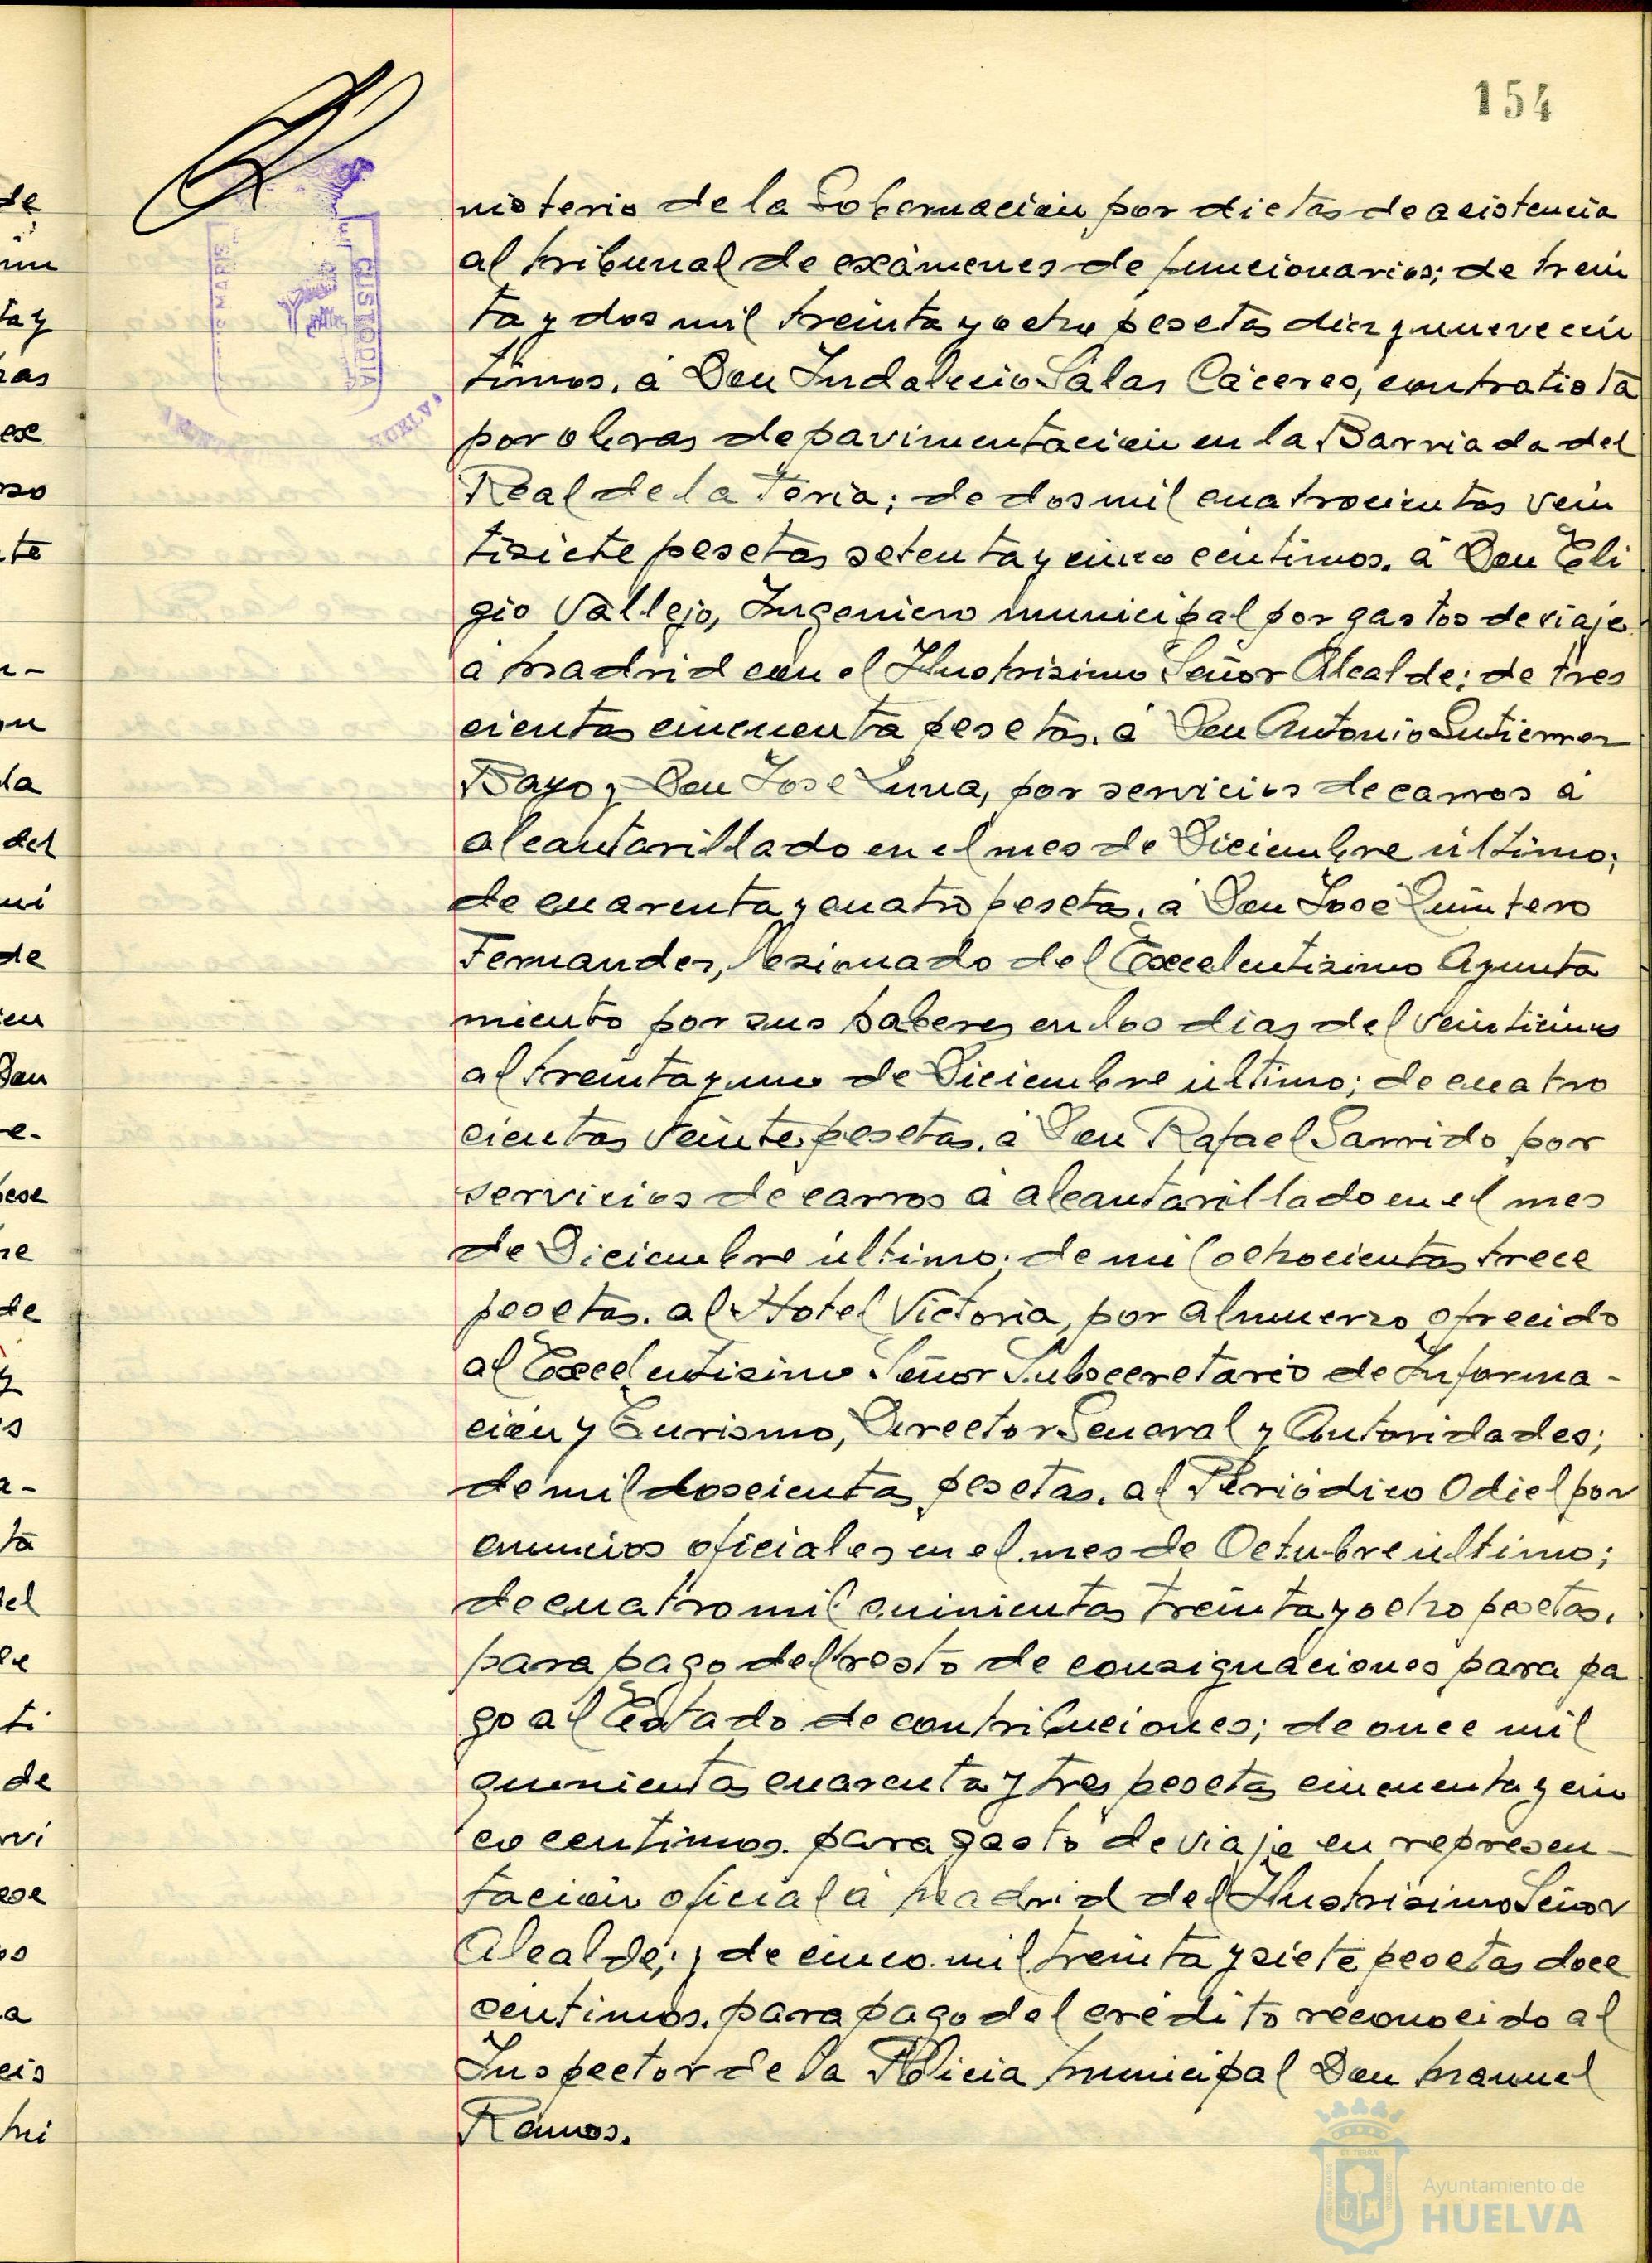 154
nisterio de la Gobernación por dietas de asistencia
al tribunal de exámenes de funcionarios; de trein
ta y dos mil treinta y ocho pesetas diez y nueve cén
timos. á Don Indalecio Salas Cáceres, contratista
por obras de pavimentación en la Barriada del
Real de la Feria; de dos mil cuatrocientas vein
tisiete pesetas setenta y cinco centimos. á Don Eli
gio Vallejo, Ingeniero municipal por gastos de viaje
a Madrid con el Ilustrisimo Señor Alcalde; de tres
cientas cincuenta pesetas. á Don Antonio Gutierrez
Bayo y Don José Luna, por servicios de carros á
alcantarillado en el mes de Diciembre último;
de cuarenta y cuatro pesetas. á Don José Quintero
Fernandez, lesionado del Excelentisimo Ayunta
miento por sus haberes en los dias del veinticinco
al treinta y uno de Diciembre último; de cuatro
cientas veinte pesetas. á Don Rafael Garrido por
servicios de carros a alcantarillado en el mes
de Diciembre último; de mil ochocientas trece
pesetas. al Hotel Victoria, por almuerzo ofrecido
al Excelentisimo Señor Subsecretario de Informa-
ción y Turismo, Director General y Autoridades;
de mil doscientas pesetas. al Periódico Odiel por
anuncios oficiales en el mes de Octubre último;
de cuatro mil quinientas treinta y ocho pesetas.
para pago del resto de consignaciones para pa
go al Estado de contribuciones; de once mil
quinientas cuarenta y tres pesetas cincuenta y cin
co centimos. para gasto de viaje en represen-
tación oficial á Madrid del Ilustrisimo Señor
Alcalde; y de cinco mil treinta y siete pesetas doce
centimos. para pago del crédito reconocido al
Inspector de la Policia Municipal Don Manuel
Ramos.
MARIS
CUSTODIA
HUELVA
Ayuntamiento de
HUELVA